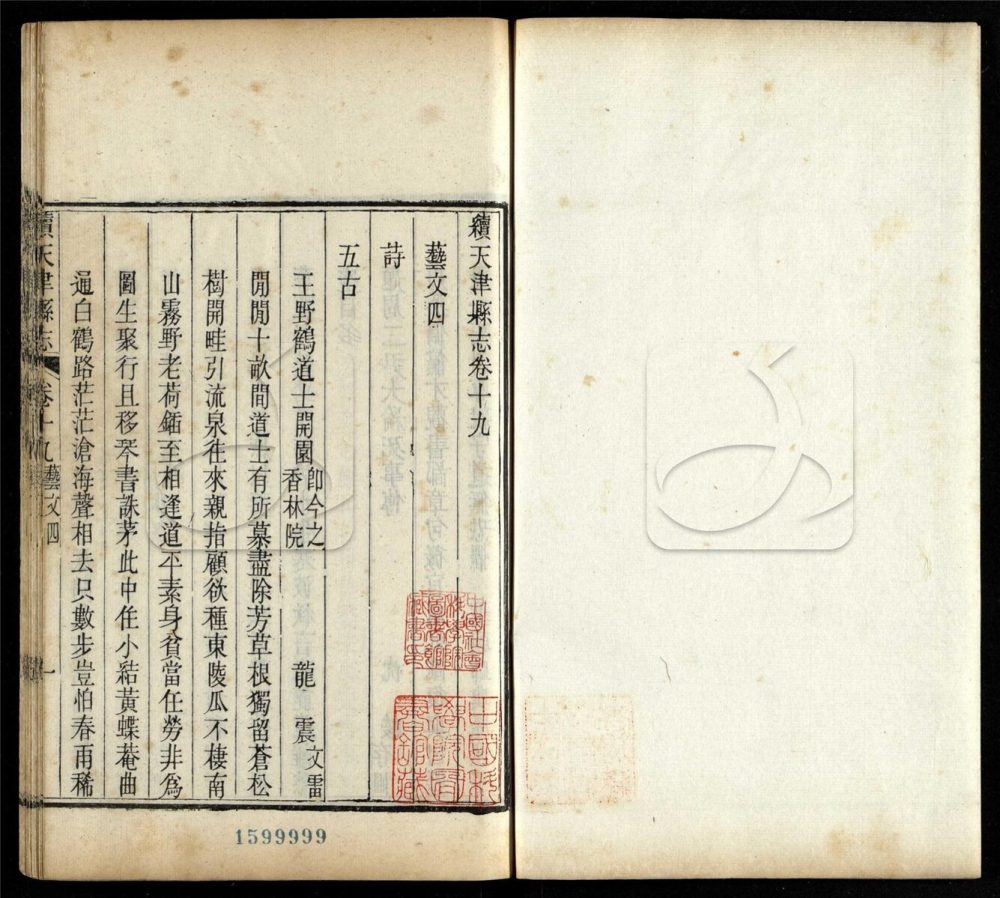 續天津縣志卷十九
藝文四
詩
五古
王野鶴道士開園 卽今之香林院 龍震 文雷
閒閒十畝間道士有所慕盡除芳草根獨留蒼松
樹開畦引流泉往來親指顧欲種東陵瓜不棲南
山霧野老荷鍤至相逢道平素身貧當任勞非爲
圖生聚行且移琴書誅茅此中住小結黃蝶菴曲
通白鶴路茫茫滄海聲相去只數步豈怕春雨稀
續天津縣志 卷十九 藝文四 一
中國社會科學院圖書館藏書
中國科學院圖書館藏
1599999